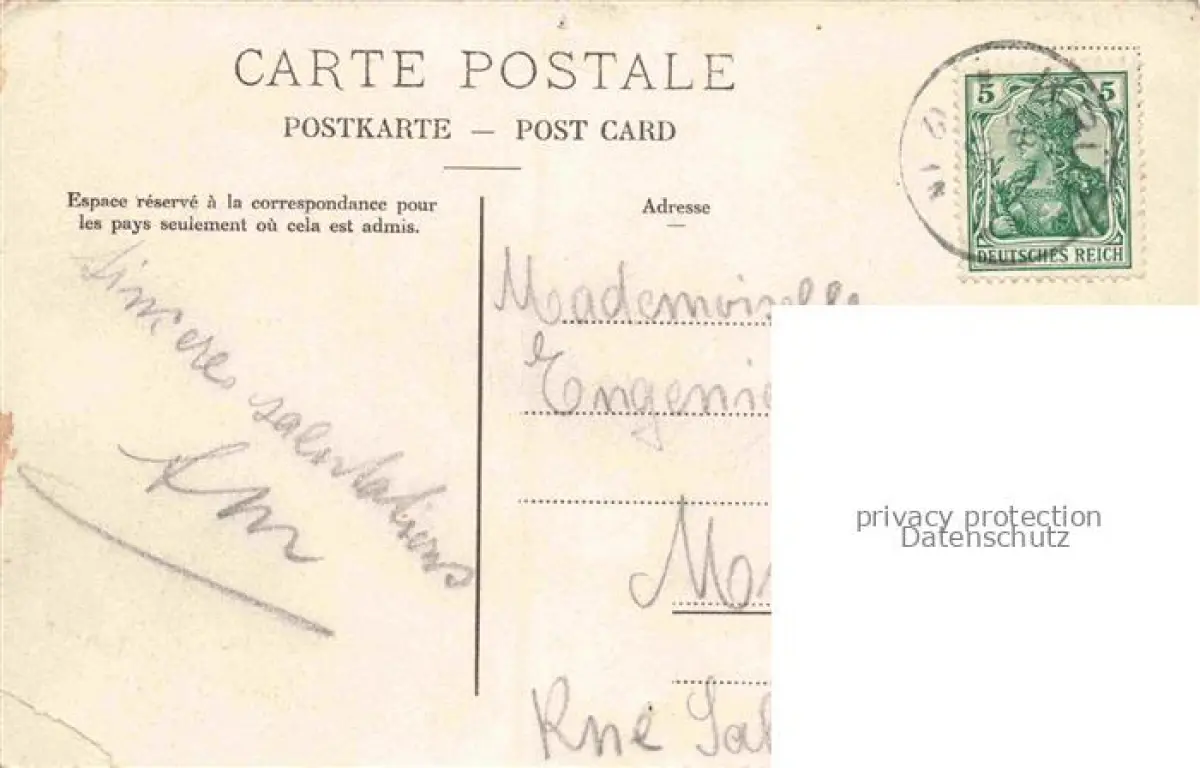 CARTE POSTALE
POSTKARTE — POST CARD
Espace réservé à la correspondance pour
les pays seulement où cela est admis.
Adresse
5 5
DEUTSCHES REICH
Sincères salutations
Mademoiselle
Engenie
privacy protection
Datenschutz